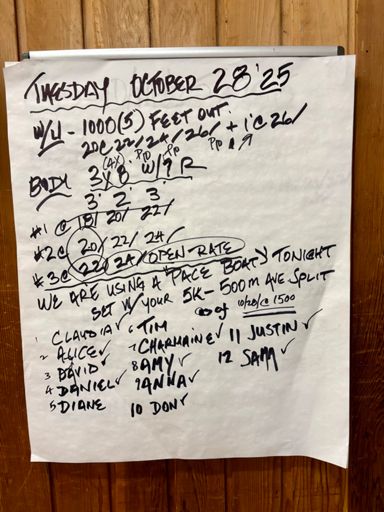 TUESDAY OCTOBER 28 '25
W/U - 1000(5) FEET OUT
20@ 22/ 24/ 26/ + 1'@ 26/
PP PP PP
(4X)
BODY 3 X 8' W/9' R
3' 2' 3'
#1 @ 18/ 20/ 22/
#2@ 20/ 22/ 24/
#3@ 22/ 24/ OPEN-RATE
WE ARE USING A "PACE BOAT" TONIGHT
SET W/ YOUR 5K - 500M AVE SPLIT
as of 10/28/@ 1500
1 CLAUDIA✓ 6 TIM
2 ALICE✓ 7 CHARMAINE✓ 11 JUSTIN✓
3 DAVID 8 AMY✓ 12 SAM✓
4 DANIEL✓ 9 ANNA✓
5 DIANE 10 DON✓